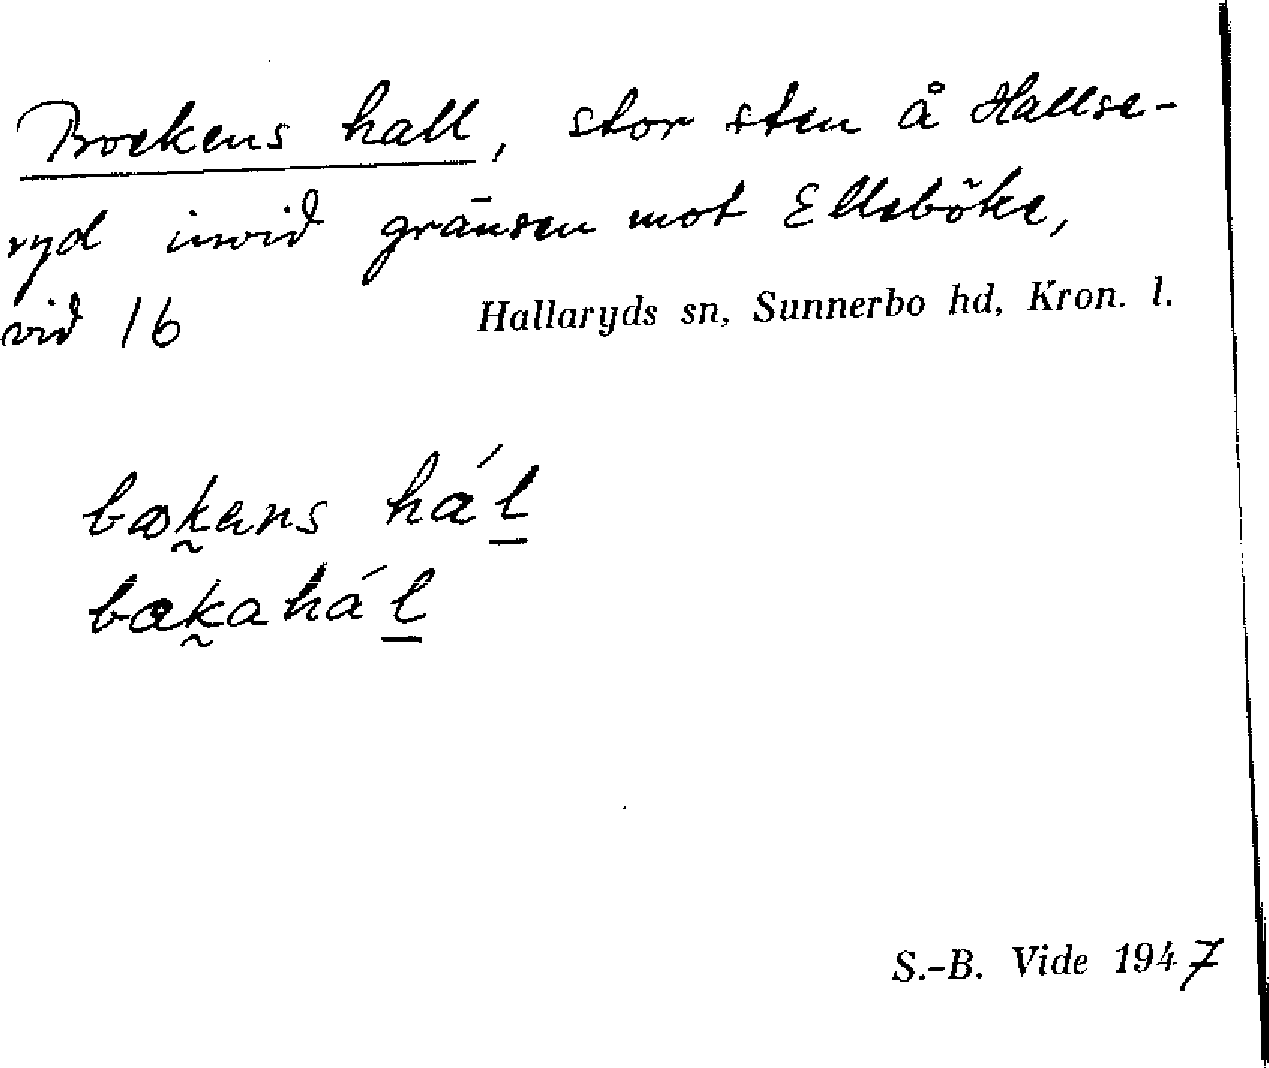 Bockens hall, stor sten å Hallse-
ryd invid gränsen mot Elleböke,
vid 16
Hallaryds sn, Sunnerbo hd, Kron. l.
bo̰kens há l̲
bo̰kahá l̲
S.-B. Vide 1947